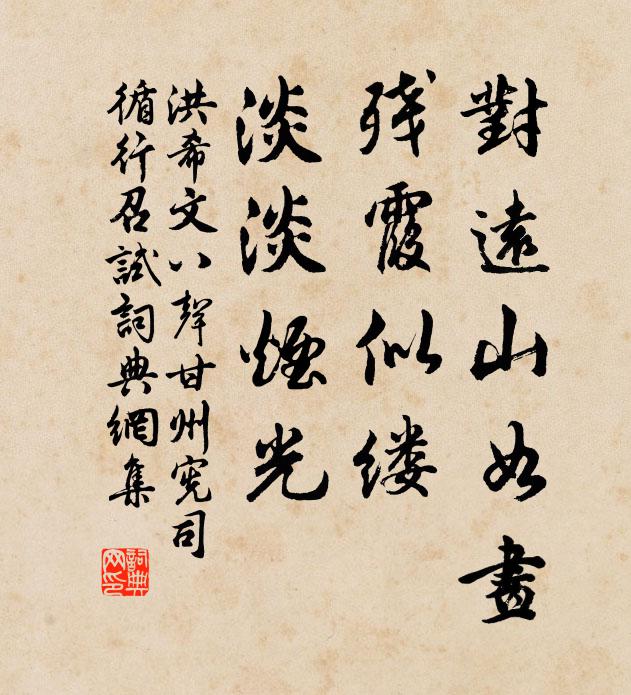 對遠山如畫
残霞似缕
淡淡煙光
洪希文八聲甘州宪司
循行召試詞典網集
詞典网印